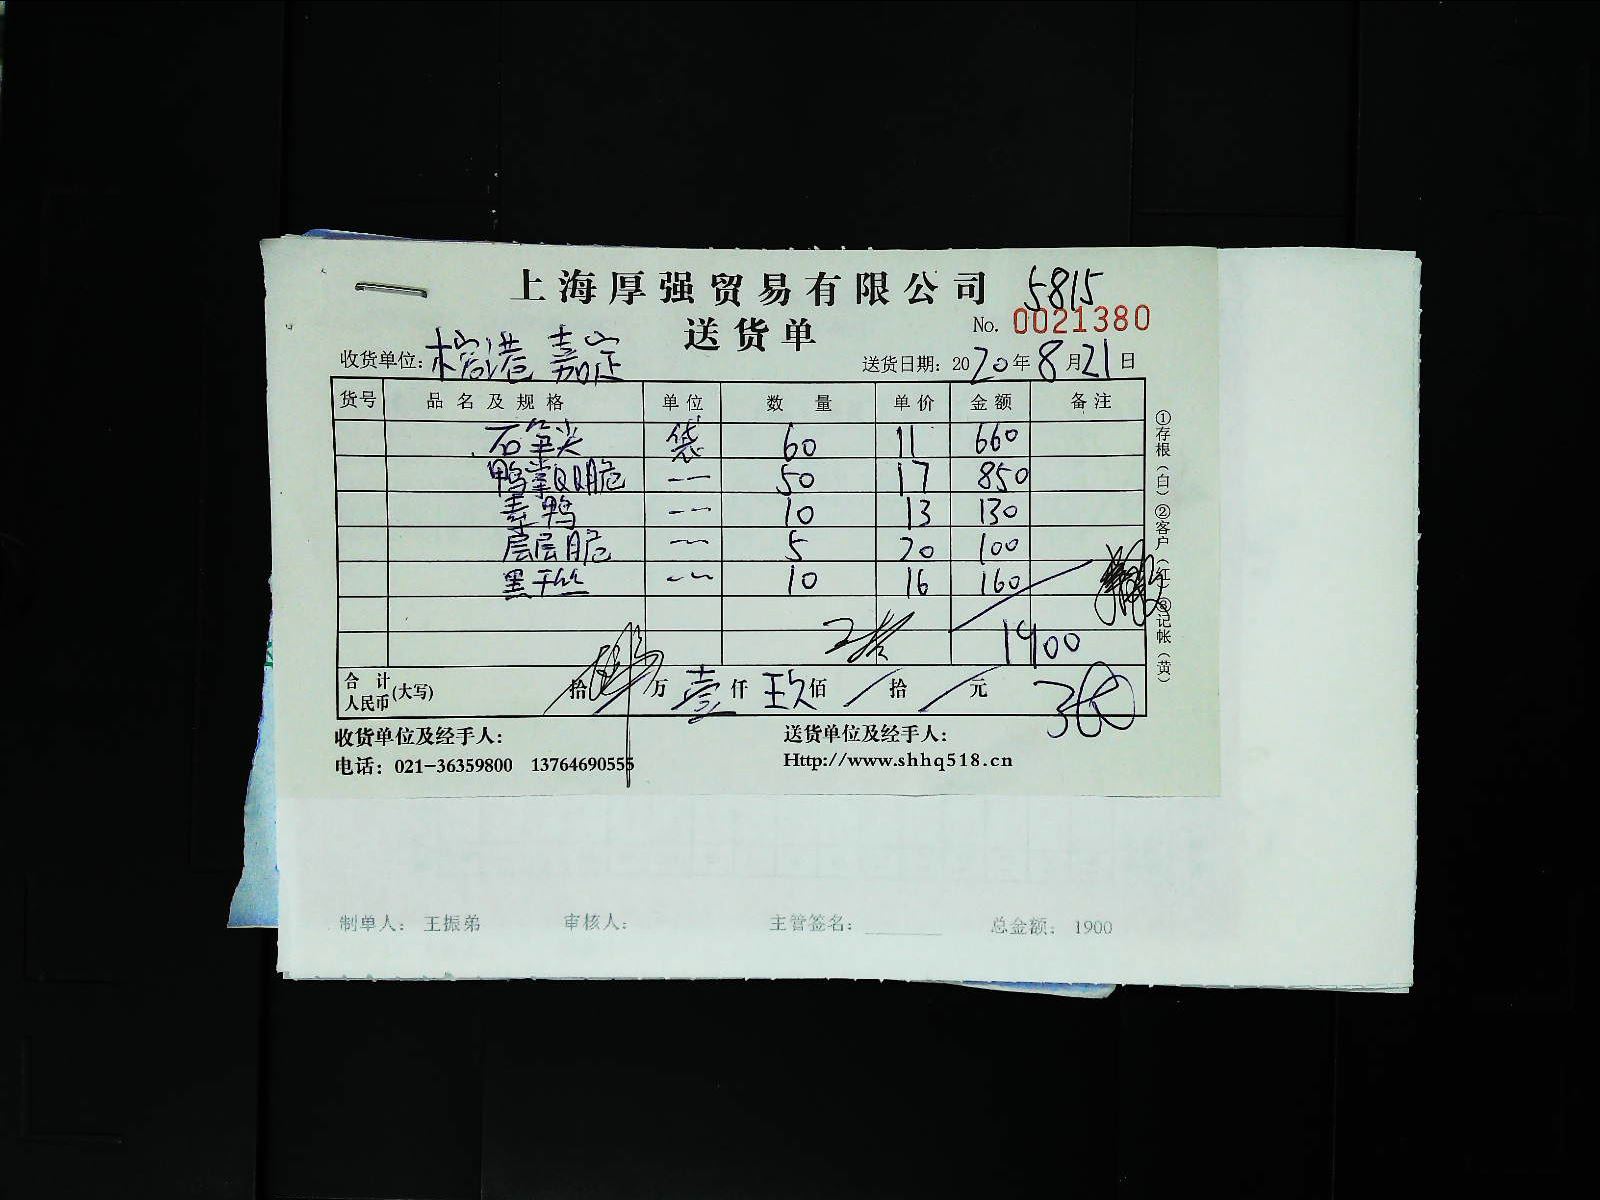 上海厚强贸易有限公司 5815
送货单 No. 0021380
收货单位: 榕港 嘉定 送货日期: 2020年8月21日
货号 品名及规格 单位 数量 单价 金额 备注
石笋尖 袋 60 11 660
鸭掌双脆 -- 50 17 850
素鸭 -- 10 13 130
层层脆 -- 5 20 100
黑干丝 -- 10 16 160
1900
合计人民币(大写) 拾 万 壹 仟 玖 佰 / 拾 / 元
收货单位及经手人: 送货单位及经手人:
电话: 021-36359800 13764690555 Http://www.shhq518.cn
①存根(白)②客户(红)③记帐(黄)
制单人: 王振弟 审核人: 主管签名: ______ 总金额: 1900